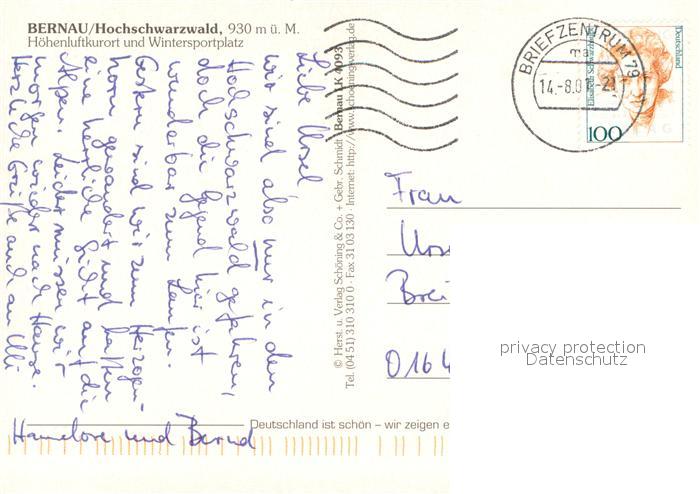 BERNAU/Hochschwarzwald, 930 m ü. M.
Höhenluftkurort und Wintersportplatz
Liebe Ursel
wir sind also nur in den
Hochschwarzwald gefahren,
doch die Gegend hier ist
wunderbar zum Laufen.
Gestern sind wir zum Herzogen-
horn gewandert und hatten
eine herrliche Sicht auf die
Alpen. Leider müssen wir
morgen wieder nach Hause.
Herzliche Grüße auch an Ulli
Hannelore und Bernd
© Herst. u. Verlag Schöning & Co. + Gebr. Schmidt
Bernau LK 4093
Tel. (04 51) 310 310 0 · Fax 31 03 130 · Internet: http://www.schoeningverlag.de
Deutschland ist schön – wir zeigen e
BRIEFZENTRUM 79
ma
14.-8.01-21
Deutschland
Elisabeth Schwarzhaupt
100
Frau
Urs
Brei
0164
privacy protection
Datenschutz